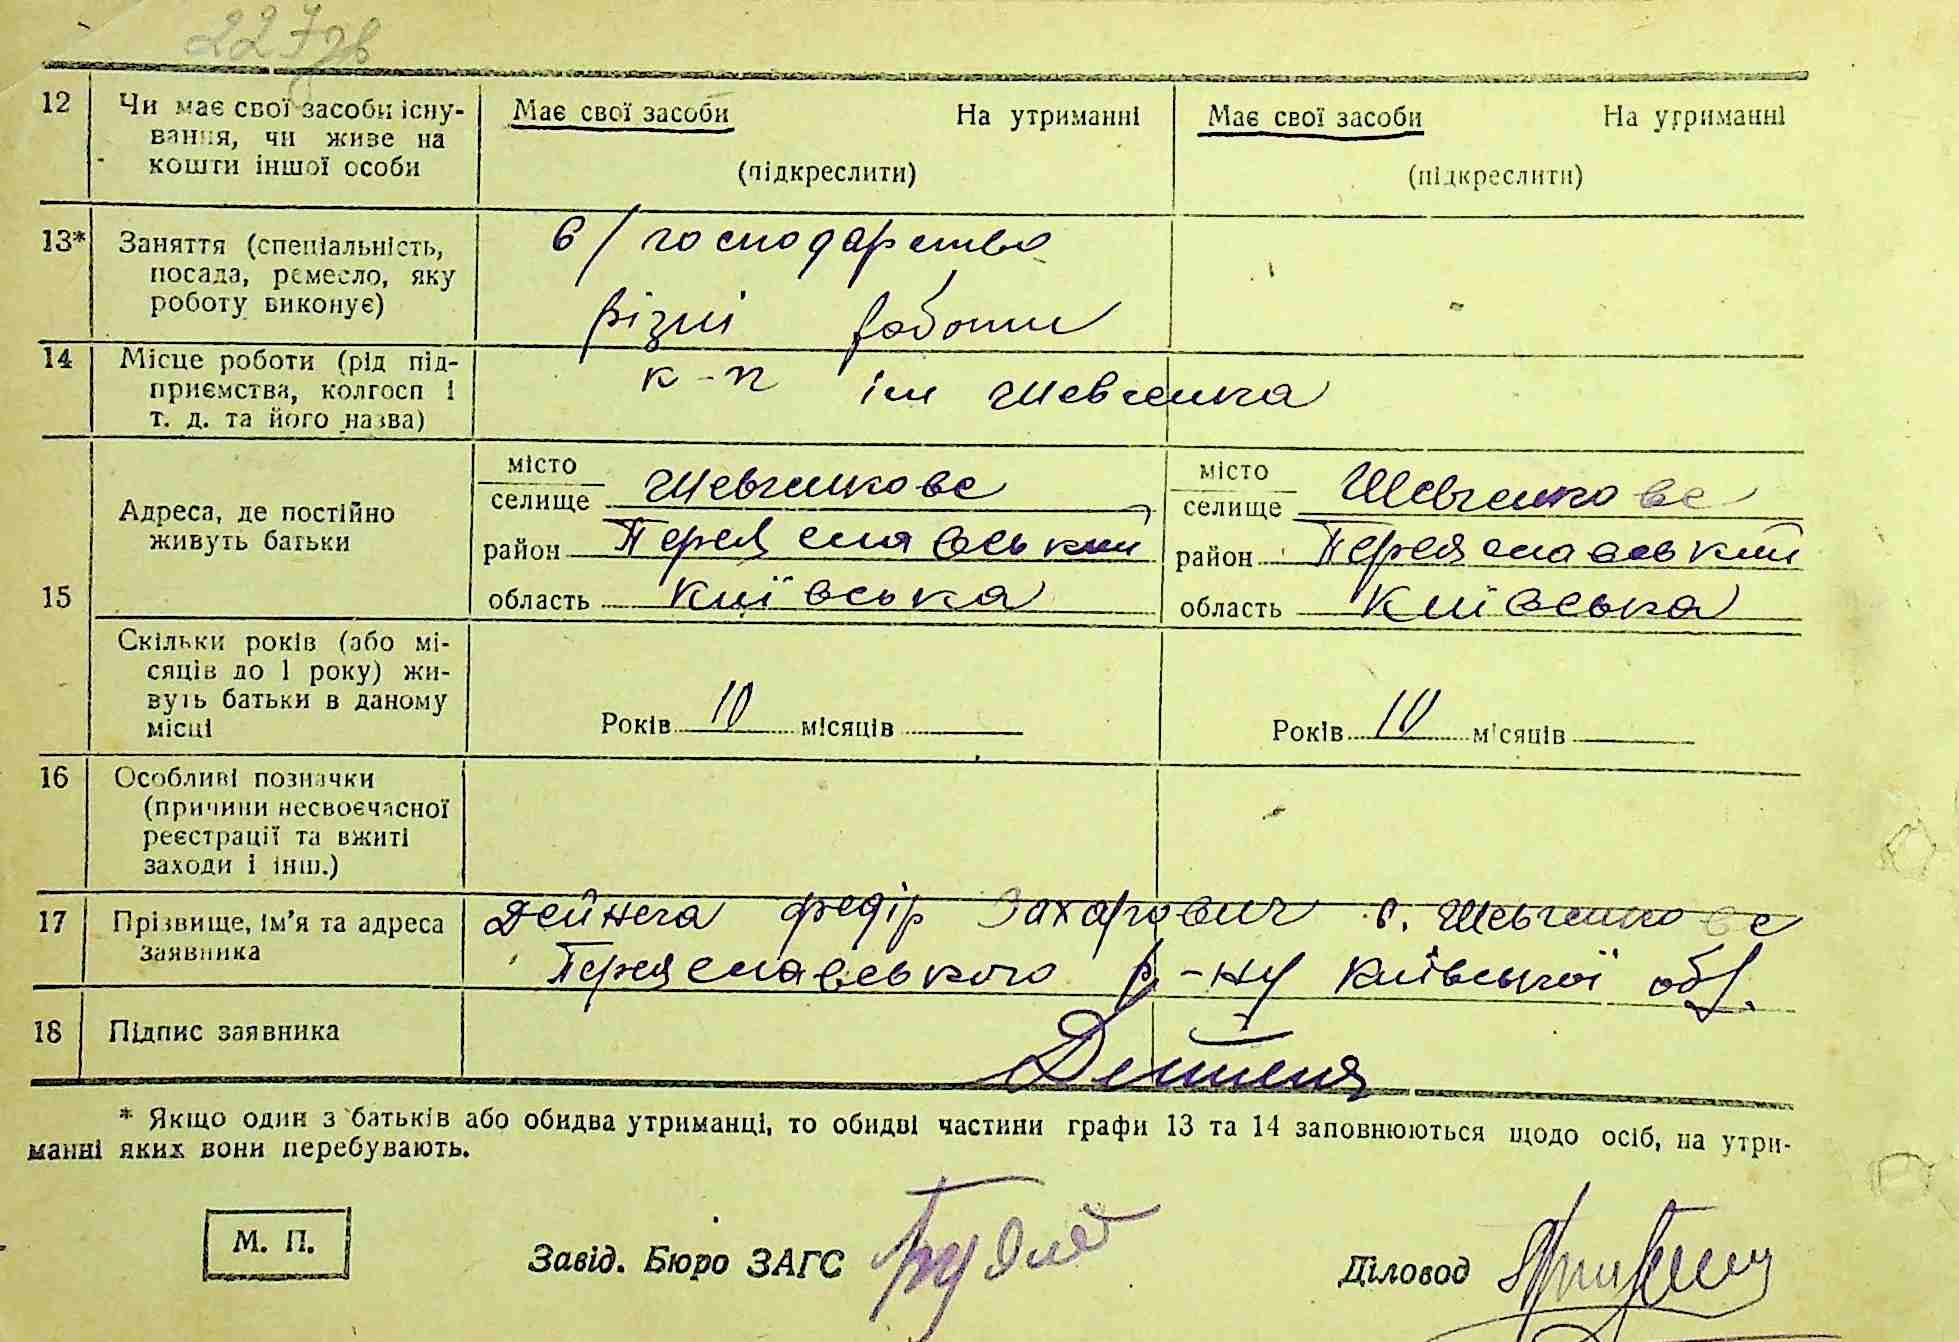 227зв
12 Чи має свої засоби існу- Має свої засоби На утриманні Має свої засоби На утриманні
вання, чи живе на
кошти іншої особи (підкреслити) (підкреслити)
13* Заняття (спеціальність, в/господарство
посада, ремесло, яку
роботу виконує) різні работи
14 Місце роботи (рід під- к-п ім Шевченка
приємства, колгосп і
т. д. та його назва)
15 Адреса, де постійно
живуть батьки
місто місто
селище Шевченкове селище Шевченкове
район Переяславський район Переяславський
область Київська область Київська
Скільки років (або мі-
сяців до 1 року) жи-
вуть батьки в даному
місці Років 10 місяців Років 10 місяців
16 Особливі позначки
(причини несвоєчасної
реєстрації та вжиті
заходи і інш.)
17 Прізвище, ім'я та адреса Дейнега Федір Захарович с. Шевченкове
заявника Переяславського р-ну Київської обл.
18 Підпис заявника
* Якщо один з батьків або обидва утриманці, то обидві частини графи 13 та 14 заповнюються щодо осіб, на утри-
манні яких вони перебувають.
М. П.
Завід. Бюро ЗАГС Діловод